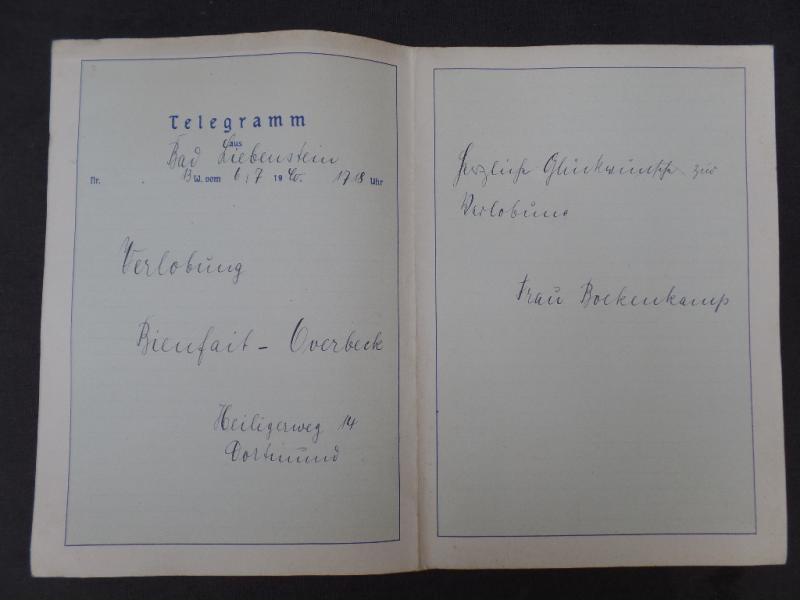 Telegramm
aus
Bad Liebenstein
Nr. B W. vom 6/7 1940. 1718 Uhr
Verlobung
Bienfait - Overbeck
Heiligerweg 14
Dortmund
Herzliche Glückwünsche zur
Verlobung
Frau Boekenkamp